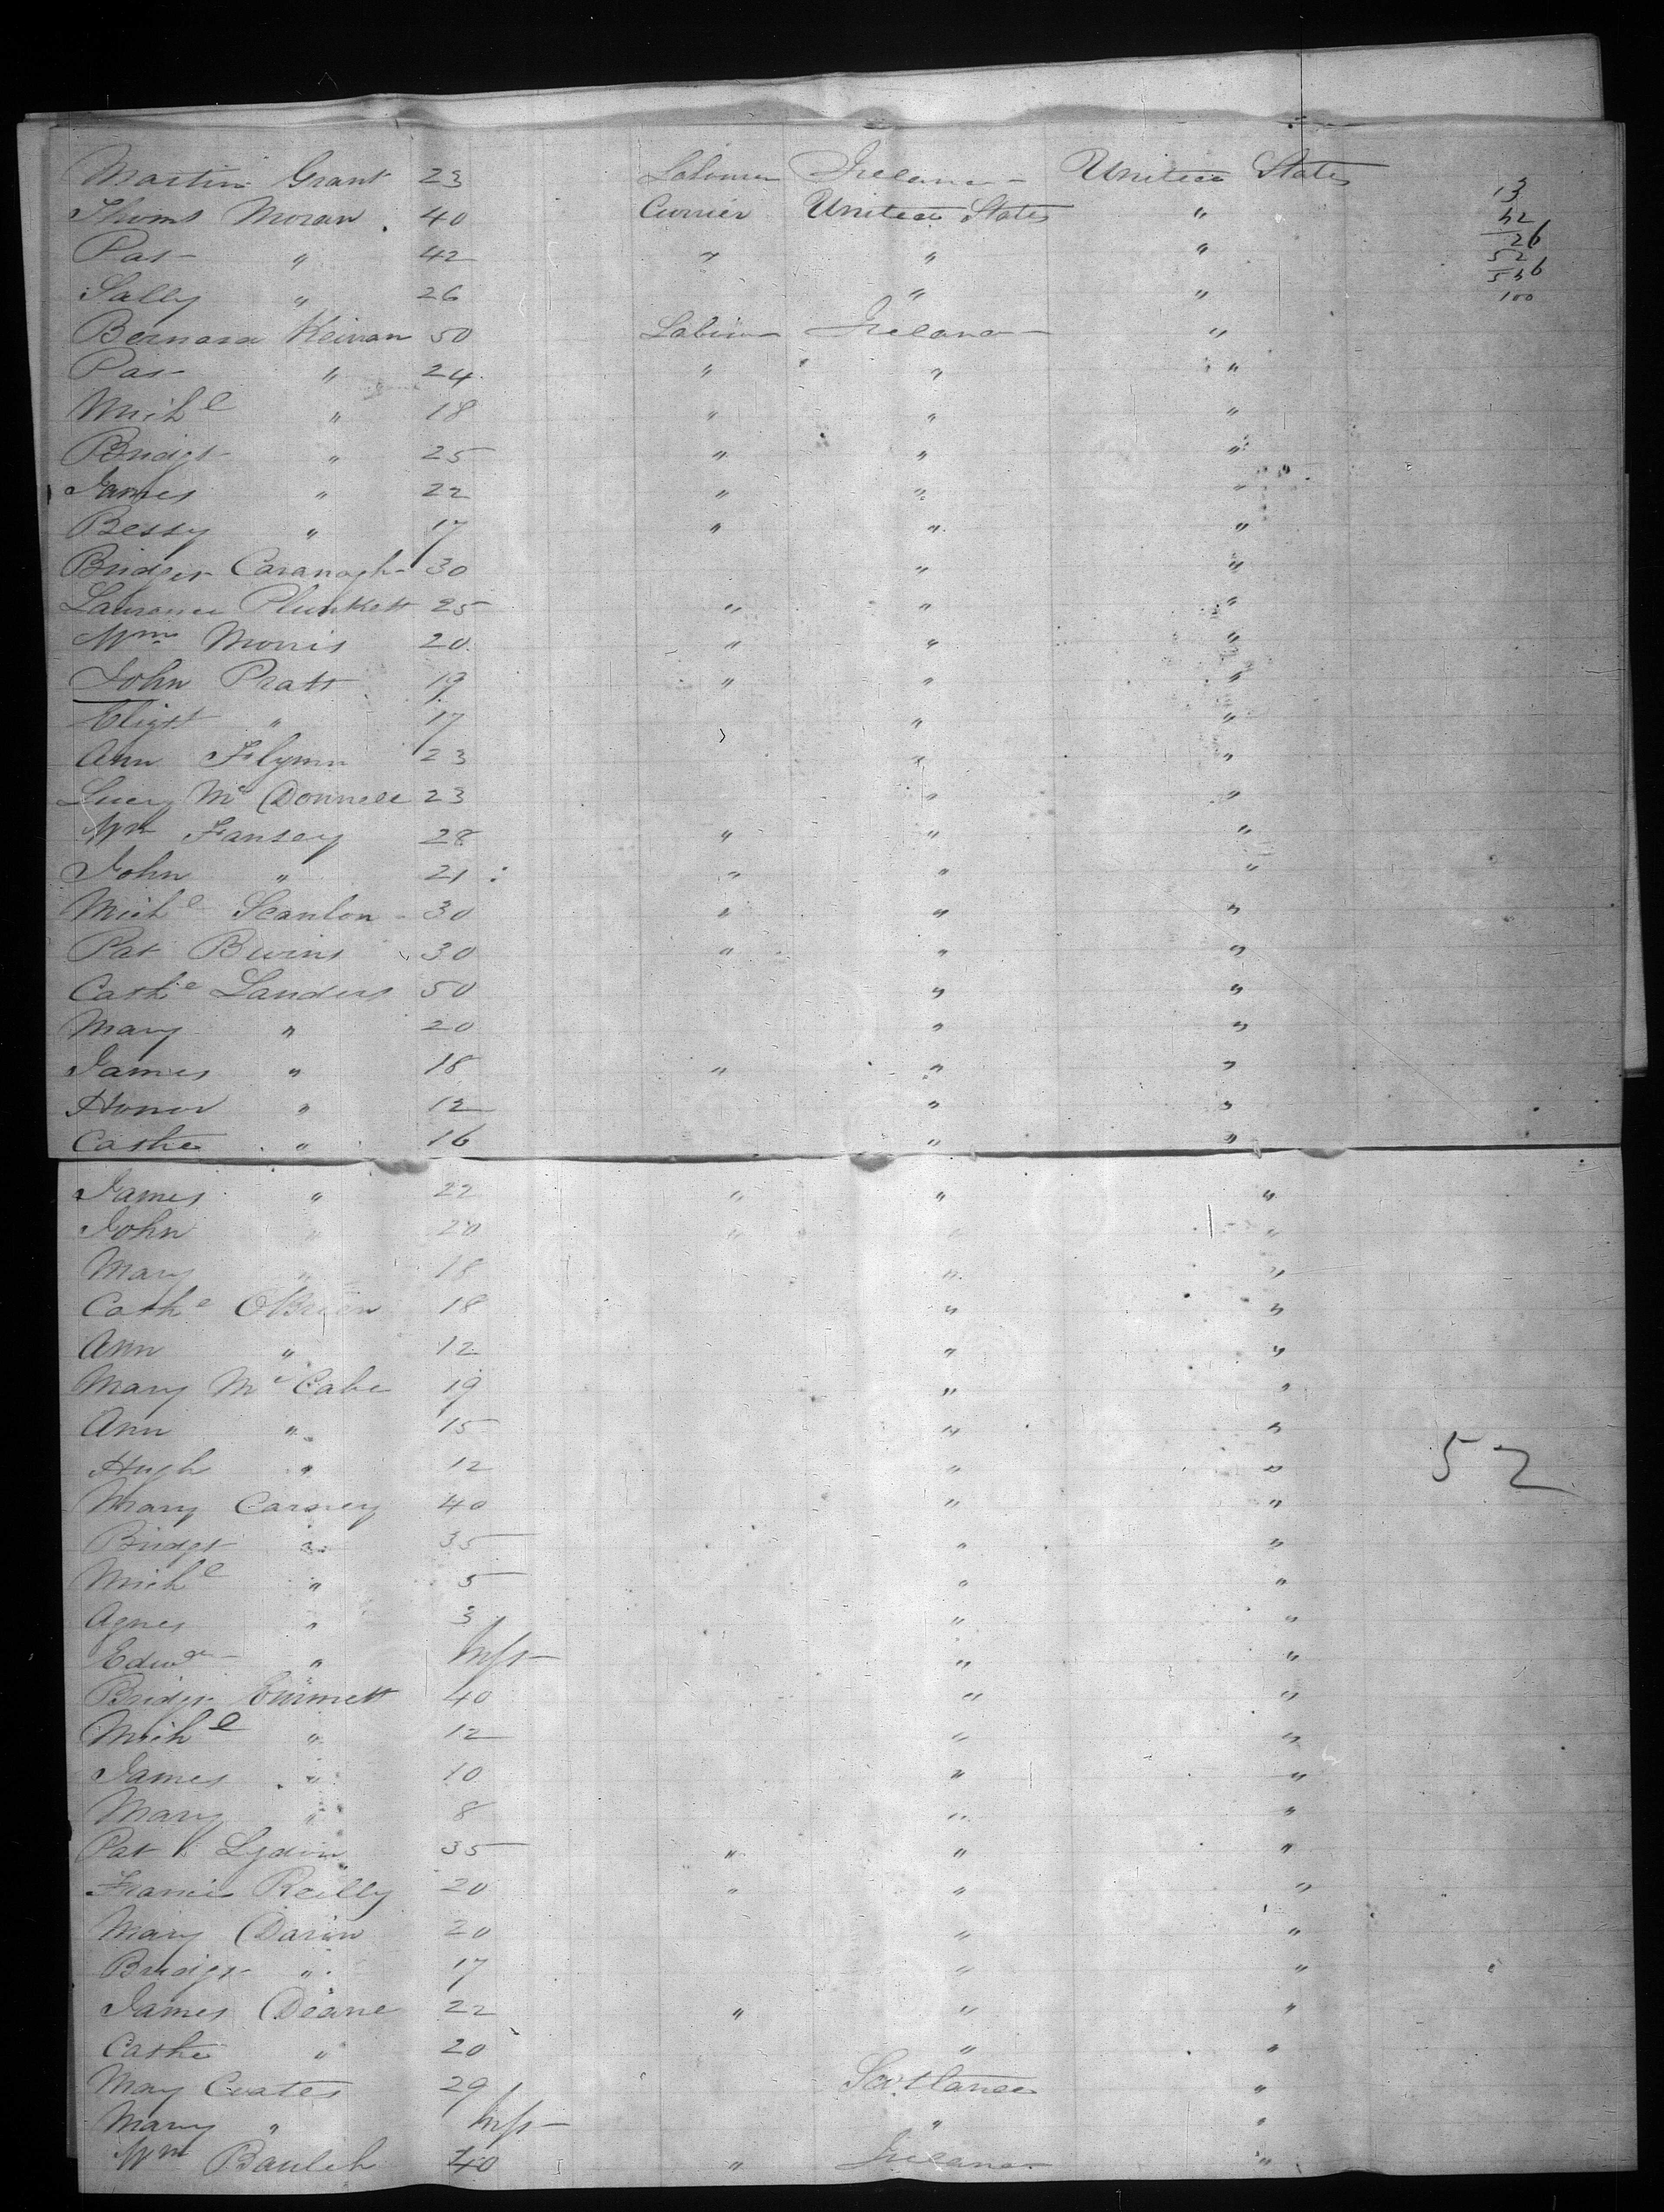 Martin Grant 23 Labourer Ireland United States
Thoms Moran 40 Currier United States "
Pat " 42 " " "
Sally " 26 " "
Bernard Keivan 50 Labour Ireland "
Pat " 24 " " "
Michl " 18 " " "
Bridgt " 25 " " "
James " 22 " " "
Bessy " 17 " " "
Bridget Cavanagh 30 " "
Laurance Plunkett 25 " " "
Wm Morris 20 " " "
John Pratt 19 " " "
" 17 " "
Ann Flynn 23 " "
Lucy Mc Donnell 23 " "
Wm Fansey 28 " " "
John " 21 " " "
Michl Scanlon 30 " " "
Pat 30 " " "
Cathe Landers 50 " "
Mary " 20 " "
James " 18 " " "
Honor " 12 " "
Cathe " 16 " "
James " 22 " " "
John " 20 " " "
Mary " 18 " "
Cathe OBrien 18 " "
Ann " 12 " "
Mary Mc Cabe 19 " "
Ann " 15 " "
Hugh " 12 " "
Mary Carney 40 " "
Bridgt " 35 " "
Michl " 5 " "
Agnes " 3 " "
Edwd " Inft " "
Bridgt Emmett 40 " "
Michl " 12 " "
James " 10 " "
Mary " 8 " "
Pat Lydon 35 " " "
Francis Reilly 20 " " "
Mary Darin 20 " "
Bridgt " 17 " "
James Deane 22 " " "
Cathe " 20 " "
May Coates 29 Scotland "
Mary " Inft " "
Wm 40 " Ireland "
13
52
26
52
100
52